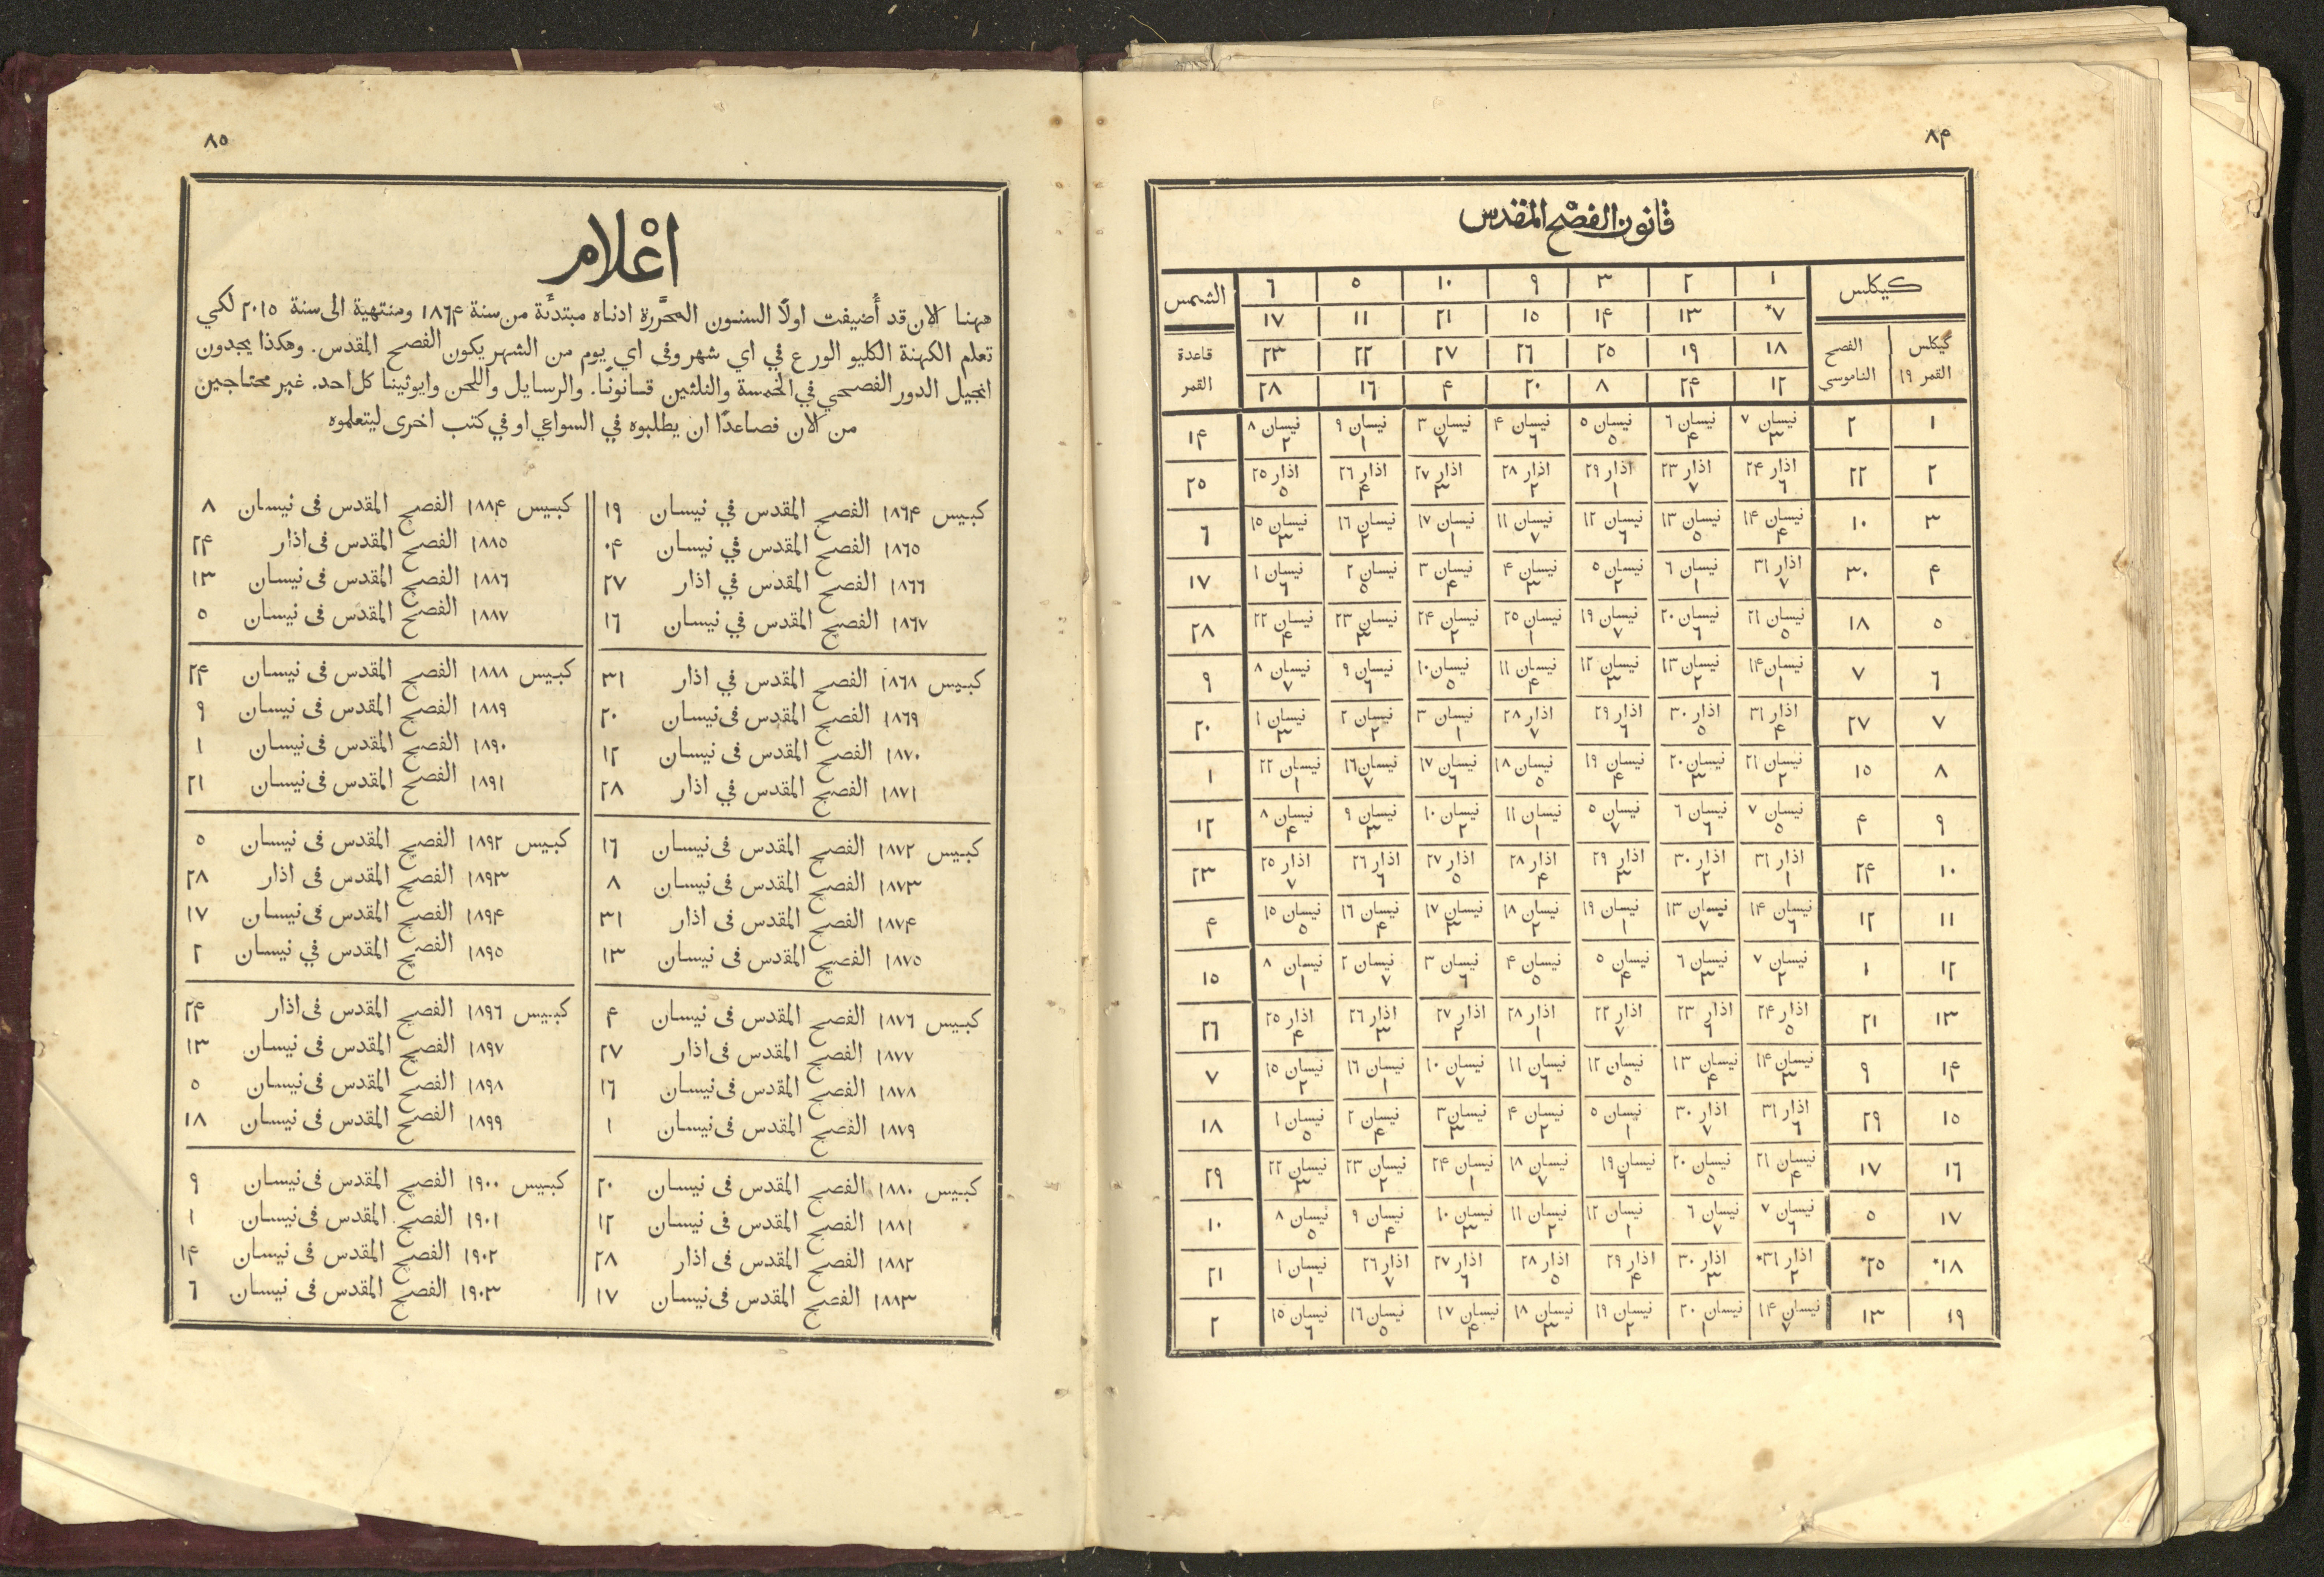 ٨٤
قانون الفصح المقدس
كيكلس ١ ٢ ٣ ٩ ١٠ ٥ ٦ الشمس
*٧ ١٣ ١٤ ١٥ ٢١ ١١ ١٧
كيكلس الفصح ١٨ ١٩ ٢٥ ٢٦ ٢٧ ٢٢ ٢٣ قاعدة
القمر ١٩ الناموسي ١٢ ٢٤ ٨ ٢٠ ٤ ١٦ ٢٨ القمر
١ ٢ نيسان ٧ نيسان ٦ نيسان ٥ نيسان ٤ نيسان ٣ نيسان ٩ نيسان ٨ ١٤
٣ ٤ ٥ ٦ ٧ ١ ٢
٢ ٢٢ اذار ٢٤ اذار ٢٣ اذار ٢٩ اذار ٢٨ اذار ٢٧ اذار ٢٦ اذار ٢٥ ٢٥
٦ ٧ ١ ٢ ٣ ٤ ٥
٣ ١٠ نيسان ١٤ نيسان ١٣ نيسان ١٢ نيسان ١١ نيسان ١٧ نيسان ١٦ نيسان ١٥ ٦
٤ ٥ ٦ ٧ ١ ٢ ٣
٤ ٣٠ اذار ٣١ نيسان ٦ نيسان ٥ نيسان ٤ نيسان ٣ نيسان ٢ نيسان ١ ١٧
٧ ١ ٢ ٣ ٤ ٥ ٦
٥ ١٨ نيسان ٢١ نيسان ٢٠ نيسان ١٩ نيسان ٢٥ نيسان ٢٤ نيسان ٢٣ نيسان ٢٢ ٢٨
٥ ٦ ٧ ١ ٢ ٣ ٤
٦ ٧ نيسان ١٤ نيسان ١٣ نيسان ١٢ نيسان ١١ نيسان ١٠ نيسان ٩ نيسان ٨ ٩
١ ٢ ٣ ٤ ٥ ٦ ٧
٧ ٢٧ اذار ٣١ اذار ٣٠ اذار ٢٩ اذار ٢٨ نيسان ٣ نيسان ٢ نيسان ١ ٢٠
٤ ٥ ٦ ٧ ١ ٢ ٣
٨ ١٥ نيسان ٢١ نيسان ٢٠ نيسان ١٩ نيسان ١٨ نيسان ١٧ نيسان ١٦ نيسان ٢٢ ١
٢ ٣ ٤ ٥ ٦ ٧ ١
٩ ٤ نيسان ٧ نيسان ٦ نيسان ٥ نيسان ١١ نيسان ١٠ نيسان ٩ نيسان ٨ ١٢
٥ ٦ ٧ ١ ٢ ٣ ٤
١٠ ٢٤ اذار ٣١ اذار ٣٠ اذار ٢٩ اذار ٢٨ اذار ٢٧ اذار ٢٦ اذار ٢٥ ٢٣
١ ٢ ٣ ٤ ٥ ٦ ٧
١١ ١٢ نيسان ١٤ نيسان ١٣ نيسان ١٩ نيسان ١٨ نيسان ١٧ نيسان ١٦ نيسان ١٥ ٤
٦ ٧ ١ ٢ ٣ ٤ ٥
١٢ ١ نيسان ٧ نيسان ٦ نيسان ٥ نيسان ٤ نيسان ٣ نيسان ٢ نيسان ٨ ١٥
٢ ٣ ٤ ٥ ٦ ٧ ١
١٣ ٢١ اذار ٢٤ اذار ٢٣ اذار ٢٢ اذار ٢٨ اذار ٢٧ اذار ٢٦ اذار ٢٥ ٢٦
٥ ٦ ٧ ١ ٢ ٣ ٤
١٤ ٩ نيسان ١٤ نيسان ١٣ نيسان ١٢ نيسان ١١ نيسان ١٠ نيسان ١٦ نيسان ١٥ ٧
٣ ٤ ٥ ٦ ٧ ١ ٢
١٥ ٢٩ اذار ٣١ اذار ٣٠ نيسان ٥ نيسان ٤ نيسان ٣ نيسان ٢ نيسان ١ ١٨
٦ ٧ ١ ٢ ٣ ٤ ٥
١٦ ١٧ نيسان ٢١ نيسان ٢٠ نيسان ١٩ نيسان ١٨ نيسان ٢٤ نيسان ٢٣ نيسان ٢٢ ٢٩
٤ ٥ ٦ ٧ ١ ٢ ٣
١٧ ٥ نيسان ٧ نيسان ٦ نيسان ١٢ نيسان ١١ نيسان ١٠ نيسان ٩ نيسان ٨ ١٠
٦ ٧ ١ ٢ ٣ ٤ ٥
*١٨ *٢٥ اذار ٣١* اذار ٣٠ اذار ٢٩ اذار ٢٨ اذار ٢٧ اذار ٢٦ نيسان ١ ٢١
٢ ٣ ٤ ٥ ٦ ٧ ١
١٩ ١٣ نيسان ١٤ نيسان ٢٠ نيسان ١٩ نيسان ١٨ نيسان ١٧ نيسان ١٦ نيسان ١٥ ٢
٧ ١ ٢ ٣ ٤ ٥ ٦
٨٥
اعْلام
ههنا الان قد أُضيفت اولًا السنون المحَّررة ادناه مبتدئَة من سنة ١٨٦٤ ومنتهية الى سنة ٢٠١٥ لكي
تعلم الكهنة الكليو الورع في اي شهر وفى اي يوم من الشهر يكون الفصح المقدس. وهكذا يجدون
انجيل الدور الفصحي في الخمسة والثلثين قسانونًا. والرسايل واللحن وايوثينا كل احد. غير محتاجين
من الان فصاعدًا ان يطلبوه في السواعي او في كتب اخرى ليتعلموه
كبيس ١٨٦٤ الفصح المقدس في نيسان ١٩
١٨٦٥ الفصح المقدس في نيسان ٠٤
١٨٦٦ الفصح المقدس في اذار ٢٧
١٨٦٧ الفصح المقدس في نيسان ١٦
كبيس ١٨٦٨ الفصح المقدس في اذار ٣١
١٨٦٩ الفصح المقدس فى نيسان ٢٠
١٨٧٠ الفصح المقدس فى نيسان ١٢
١٨٧١ الفصح المقدس في اذار ٢٨
كبيس ١٨٧٢ الفصح المقدس فى نيسان ١٦
١٨٧٣ الفصح المقدس فى نيسان ٨
١٨٧٤ الفصح المقدس فى اذار ٣١
١٨٧٥ الفصح المقدس فى نيسان ١٣
كبيس ١٨٧٦ الفصح المقدس فى نيسان ٤
١٨٧٧ الفصح المقدس فى اذار ٢٧
١٨٧٨ الفصح المقدس فى نيسان ١٦
١٨٧٩ الفصح المقدس فى نيسان ١
كبيس ١٨٨٠ الفصح المقدس فى نيسان ٢٠
١٨٨١ الفصح المقدس فى نيسان ١٢
١٨٨٢ الفصح المقدس فى اذار ٢٨
١٨٨٣ الفصح المقدس فى نيسان ١٧
كبيس ١٨٨٤ الفصح المقدس فى نيسان ٨
١٨٨٥ الفصح المقدس فى اذار ٢٤
١٨٨٦ الفصح المقدس فى نيسان ١٣
١٨٨٧ الفصح المقدس فى نيسان ٥
كبيس ١٨٨٨ الفصح المقدس فى نيسان ٢٤
١٨٨٩ الفصح المقدس فى نيسان ٩
١٨٩٠ الفصح المقدس فى نيسان ١
١٨٩١ الفصح المقدس فى نيسان ٢١
كبيس ١٨٩٢ الفصح المقدس فى نيسان ٥
١٨٩٣ الفصح المقدس فى اذار ٢٨
١٨٩٤ الفصح المقدس فى نيسان ١٧
١٨٩٥ الفصح المقدس في نيسان ٢
كبيس ١٨٩٦ الفصح المقدس فى اذار ٢٤
١٨٩٧ الفصح المقدس فى نيسان ١٣
١٨٩٨ الفصح المقدس فى نيسان ٥
١٨٩٩ الفصح المقدس فى نيسان ١٨
كبيس ١٩٠٠ الفصح المقدس فى نيسان ٩
١٩٠١ الفصح المقدس فى نيسان ١
١٩٠٢ الفصح المقدس فى نيسان ١٤
١٩٠٣ الفصح المقدس فى نيسان ٦